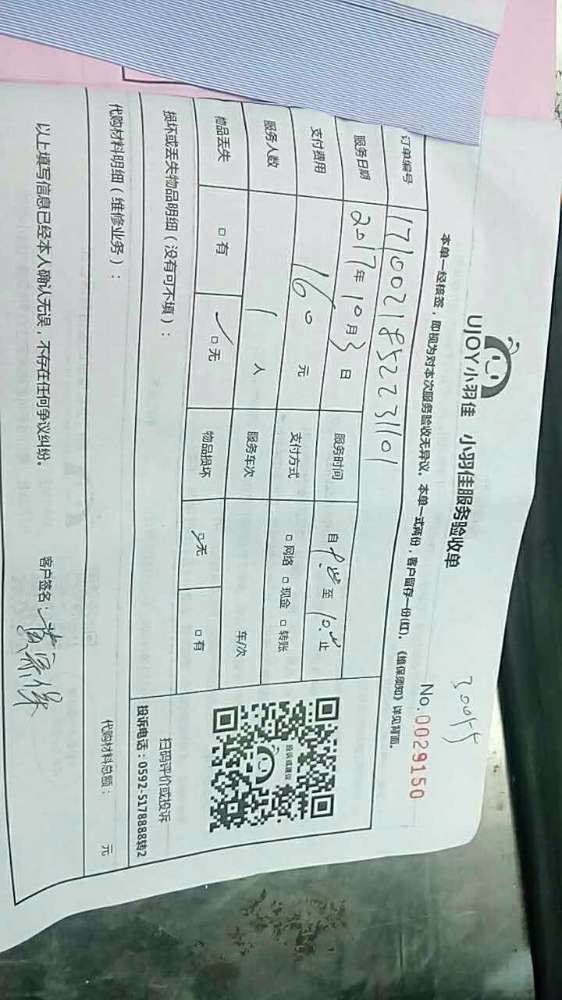 30055
UJOY小羽佳 小羽佳服务验收单
No.0029150
本单一经核签，即视为对本次服务验收无异议。本单一式两份，客户留存一份(红)。《维保须知》详见背面。
订单编号 1710021852231101
服务日期 2017年10月3日 服务时间 自 至 止
支付费用 160元 支付方式 □网络 □现金 □转账
服务人数 1人 服务车次 车/次
物品丢失 □有 ✓□无 物品损坏 ✓无 □有
损坏或丢失物品明细（没有可不填）：
投诉或建议
扫码评价或投诉
投诉电话：0592-5178888转2
代购材料明细（维修业务）： 代购材料总额： 元
以上填写信息已经本人确认无误，不存在任何争议纠纷。 客户签名：